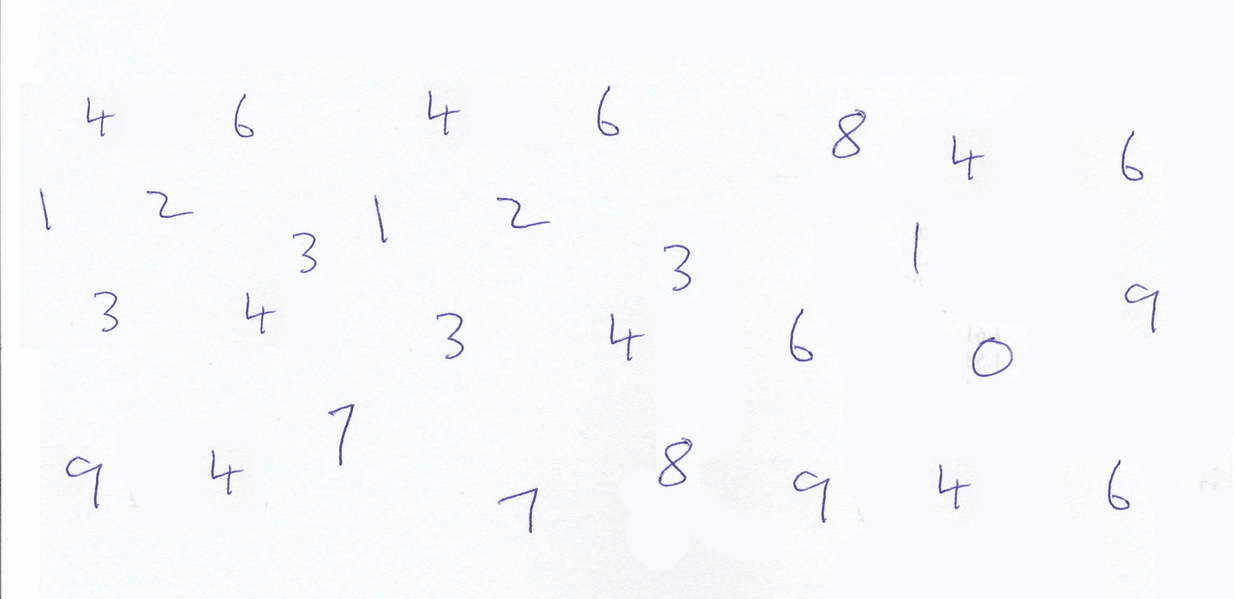 4 6 4 6 8 4 6
1 2 3 1 2 3 1 9
3 4 3 4 6 0
9 4 7 7 8 9 4 6